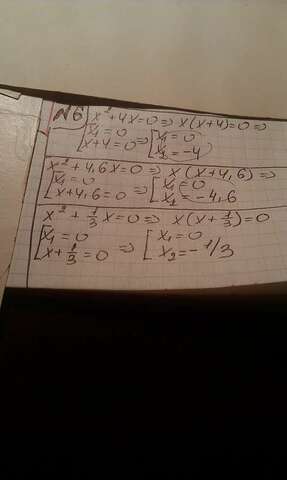 №6 x²+4x=0 => x(x+4)=0 =>
[x₁=0 x+4=0 => [x₁=0 x₂=-4
x²+4,6x=0 => x(x+4,6) =>
[x₁=0 x+4,6=0 => [x₁=0 x₂=-4,6
x²+1/3x=0 => x(x+1/3)=0
[x₁=0 x+1/3=0 => [x₁=0 x₂=-1/3